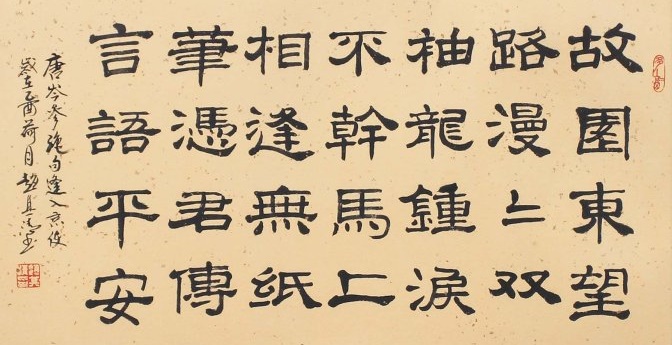 故園東望
路漫〻双
袖龍鍾淚
不幹馬上
相逢無紙
筆憑君傳
言語平安
唐岑參絕句逢入京使
歲在乙酉荷月趙